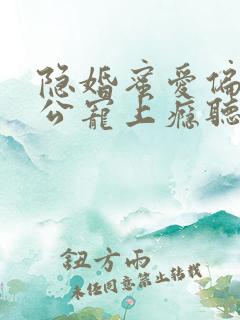 隐婚蜜爱偏
公宠上瘾聽
鈕方雨
未经同意禁止转载